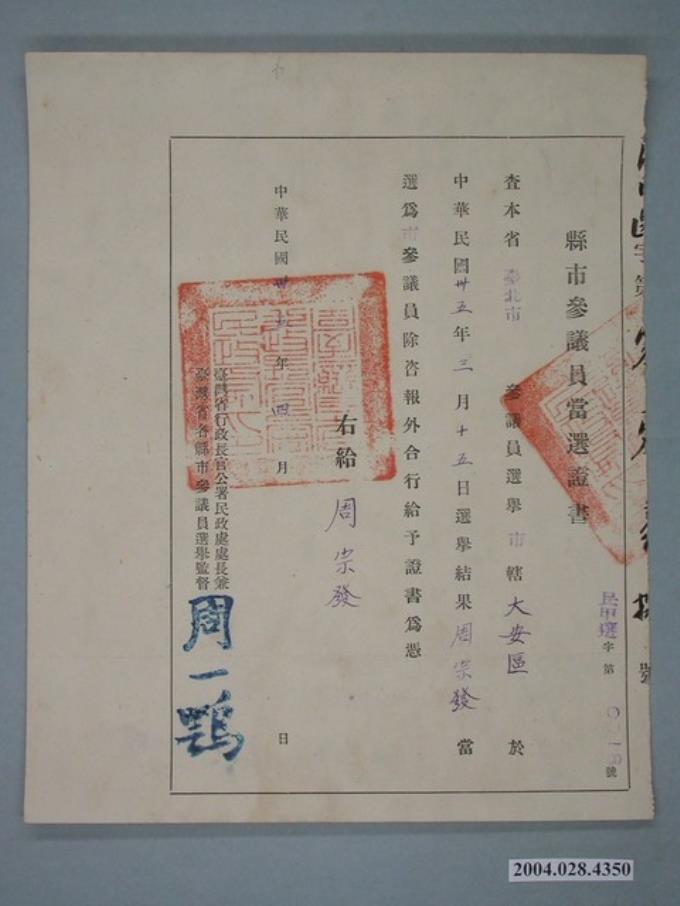 縣市參議員當選證書
民甲選字第〇〇一8號
查本省臺北市參議員選舉市轄大安區於
中華民國卅五年三月十五日選舉結果周宗發當
選爲市參議員除咨報外合行給予證書爲憑
右給周宗發
中華民國卅五年四月 日
臺灣省行政長官公署民政處處長兼
臺灣省各縣市參議員選舉監督
周一鶚
2004.028.4350